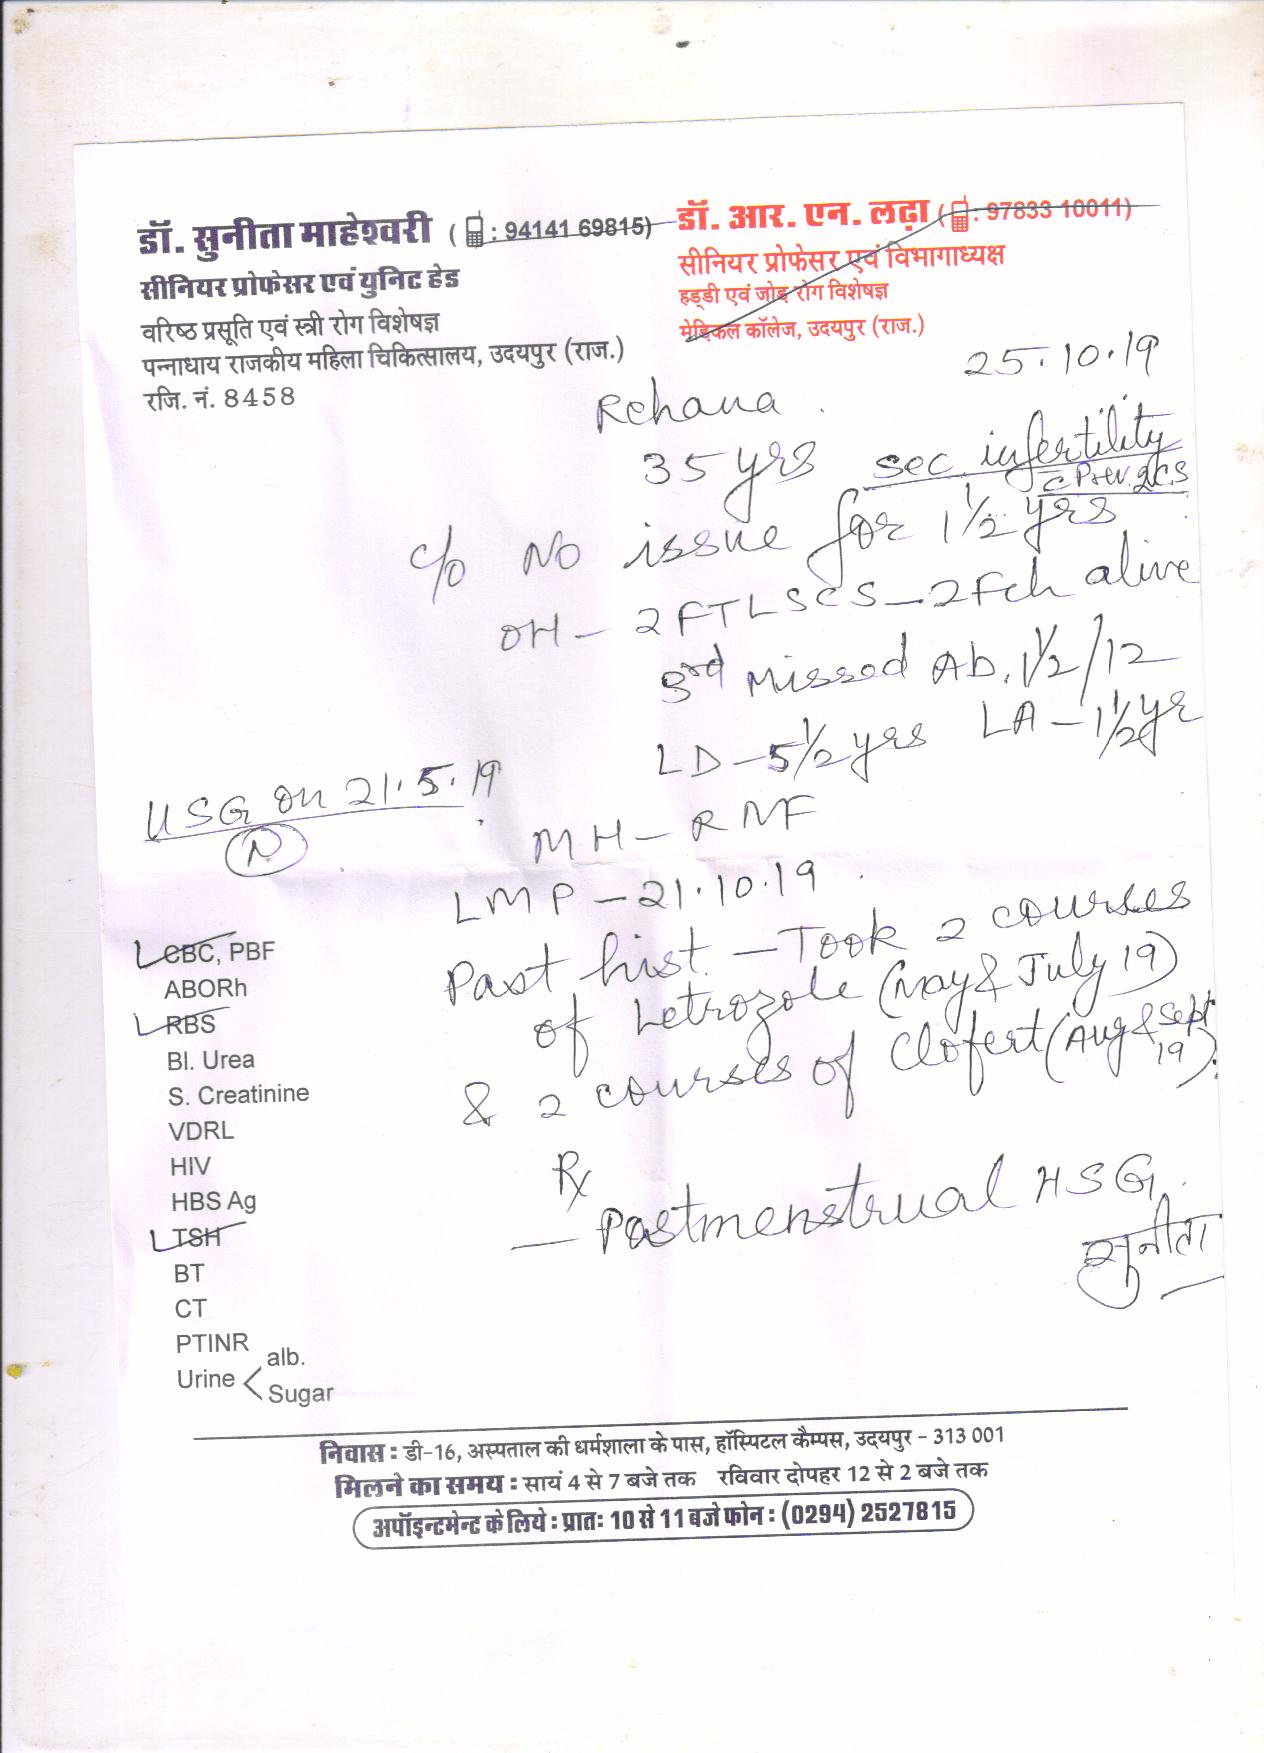 डॉ. सुनीता माहेश्वरी (: 94141 69815)
सीनियर प्रोफेसर एवं युनिट हेड
वरिष्ठ प्रसूति एवं स्त्री रोग विशेषज्ञ
पन्नाधाय राजकीय महिला चिकित्सालय, उदयपुर (राज.)
रजि. नं. 8458
डॉ. आर. एन. लढ़ा (: 97833 10011)
सीनियर प्रोफेसर एवं विभागाध्यक्ष
हड्डी एवं जोड़ रोग विशेषज्ञ
मेडिकल कॉलेज, उदयपुर (राज.)
25.10.19
Rehana
35 yrs sec. infertility
c Prev. 2CS
c/o No issue for 1½ yrs
OH - 2 FTLSCS - 2 Fch alive
3rd Missed Ab. 1½/12
LD - 5½ yrs LA - 1½ yr
USG on 21.5.19
N
MH - RNF
LMP - 21.10.19
Past hist. - Took 2 courses
of Letrozole (May & July 19)
& 2 courses of Clofert (Aug & Sept 19)
Rx
- Postmenstrual HSG.
सुनीता
CBC, PBF
ABORh
RBS
Bl. Urea
S. Creatinine
VDRL
HIV
HBS Ag
TSH
BT
CT
PTINR
Urine < alb.
Sugar
निवास : डी-16, अस्पताल की धर्मशाला के पास, हॉस्पिटल कैम्पस, उदयपुर - 313 001
मिलने का समय : सायं 4 से 7 बजे तक रविवार दोपहर 12 से 2 बजे तक
अपॉइन्टमेन्ट के लिये : प्रातः 10 से 11 बजे फोन : (0294) 2527815